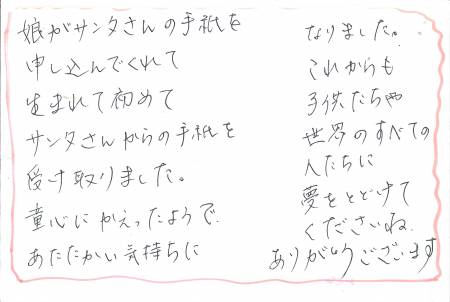 娘がサンタさんの手紙を
申し込んでくれて
生まれて初めて
サンタさんからの手紙を
受け取りました。
童心にかえったようで
あたたかい気持ちに
なりました。
これからも
子供たちや
世界のすべての
人たちに
夢をとどけて
くださいね.
ありがとうございます